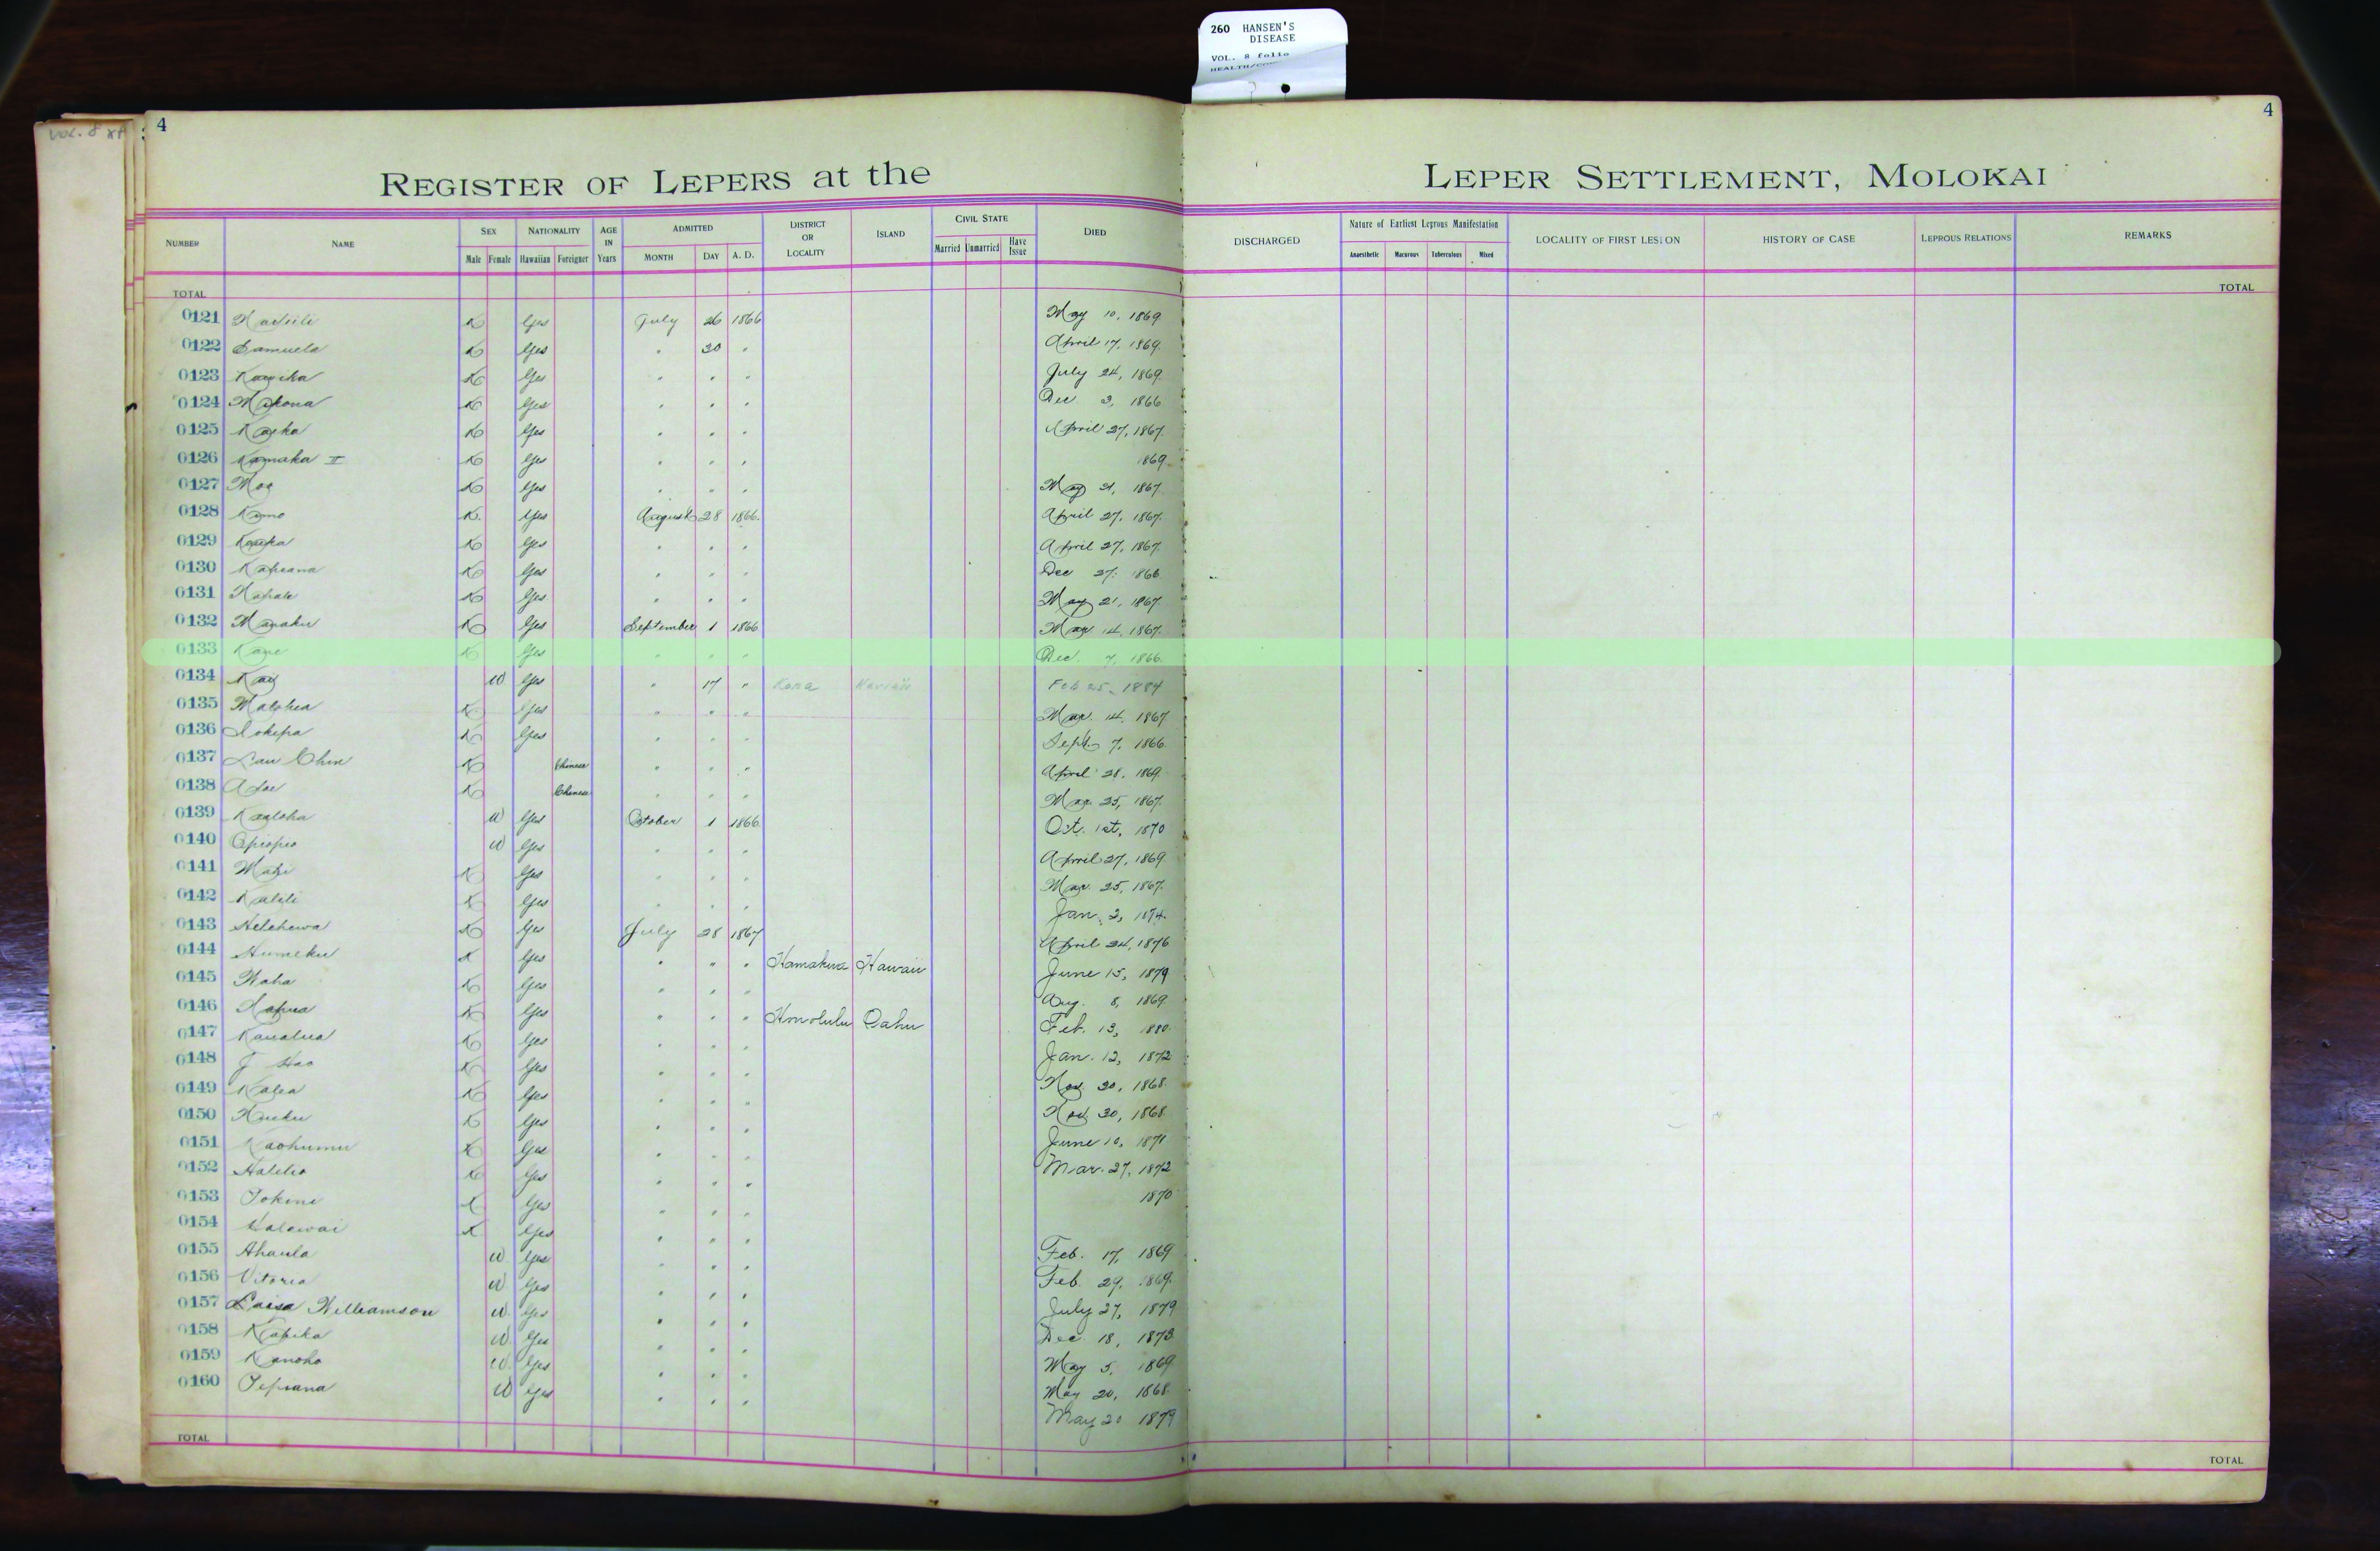 260 HANSEN'S
DISEASE
VOL. 8 folio
4
4
REGISTER OF LEPERS at the LEPER SETTLEMENT, MOLOKAI
NUMBER NAME SEX Male Female NATIONALITY Hawaiian Foreigner AGE IN Years ADMITTED MONTH DAY A. D. DISTRICT OR LOCALITY ISLAND CIVIL STATE Married Unmarried Have Issue DIED DISCHARGED Nature of Earliest Leprous Manifestation Anaesthetic Macurous Tuberculous Mixed LOCALITY OF FIRST LESION HISTORY OF CASE LEPROUS RELATIONS REMARKS
TOTAL TOTAL
0121 K Yes July 26 1866 May 10, 1869
0122 Samuela K Yes " 30 " April 17, 1869.
0123 K Yes " " " July 24, 1869.
0124 Makona K Yes " " " Dec. 3, 1866
0125 K Yes " " " April 27, 1867.
0126 Kamaka II K Yes " " " 1869
0127 Moa K Yes " " " May 21, 1867.
0128 Kamo K. Yes August 28 1866. April 27, 1867.
0129 K Yes " " " April 27, 1867.
0130 K Yes " " " Dec 27. 1866
0131 K Yes " " " May 21, 1867.
0132 K Yes September 1 1866 Mar 14, 1867.
0133 K Yes " " " Dec. 7, 1866.
0134 W Yes " 17 " Kona Hawaii Feb 25, 1884
0135 K Yes " " " Mar. 14, 1867
0136 Iokepa K Yes " " " Sept. 7, 1866.
0137 Lau Chin K Chinese " " " April 28, 1869.
0138 K Chinese " " " Mar. 25, 1867.
0139 Kaaloha W Yes October 1 1866. Oct. 1st, 1870
0140 Opiopio W Yes " " " April 27, 1869.
0141 K Yes " " " Mar. 25, 1867.
0142 K Yes " " " Jan. 2, 1874.
0143 Helehewa K Yes July 28 1867 April 24, 1876
0144 Humeku K Yes " " " Hamakua Hawaii June 15, 1879
0145 K Yes " " " Aug. 8, 1869.
0146 K Yes " " " Honolulu Oahu Feb. 13, 1880.
0147 Kaualua K Yes " " " Jan. 12, 1872
0148 K Yes " " " Nov. 30, 1868.
0149 Kalea K Yes " " " Nov. 30, 1868.
0150 K Yes " " " June 10, 1871
0151 Kaohumu K Yes " " " Mar. 27, 1872
0152 Halelio K Yes " " " 1870
0153 K Yes " " "
0154 Kalawai K Yes " " " Feb. 17, 1869
0155 Ahaula W Yes " " " Feb. 29, 1869.
0156 Vitoria W Yes " " " July 27, 1879
0157 Luisa Williamson W Yes " " " Dec. 18, 1873.
0158 Kapika W Yes " " " May 5, 1869
0159 Kanoho W Yes " " " May 20, 1868.
0160 W Yes " " " May 20 1879
TOTAL TOTAL